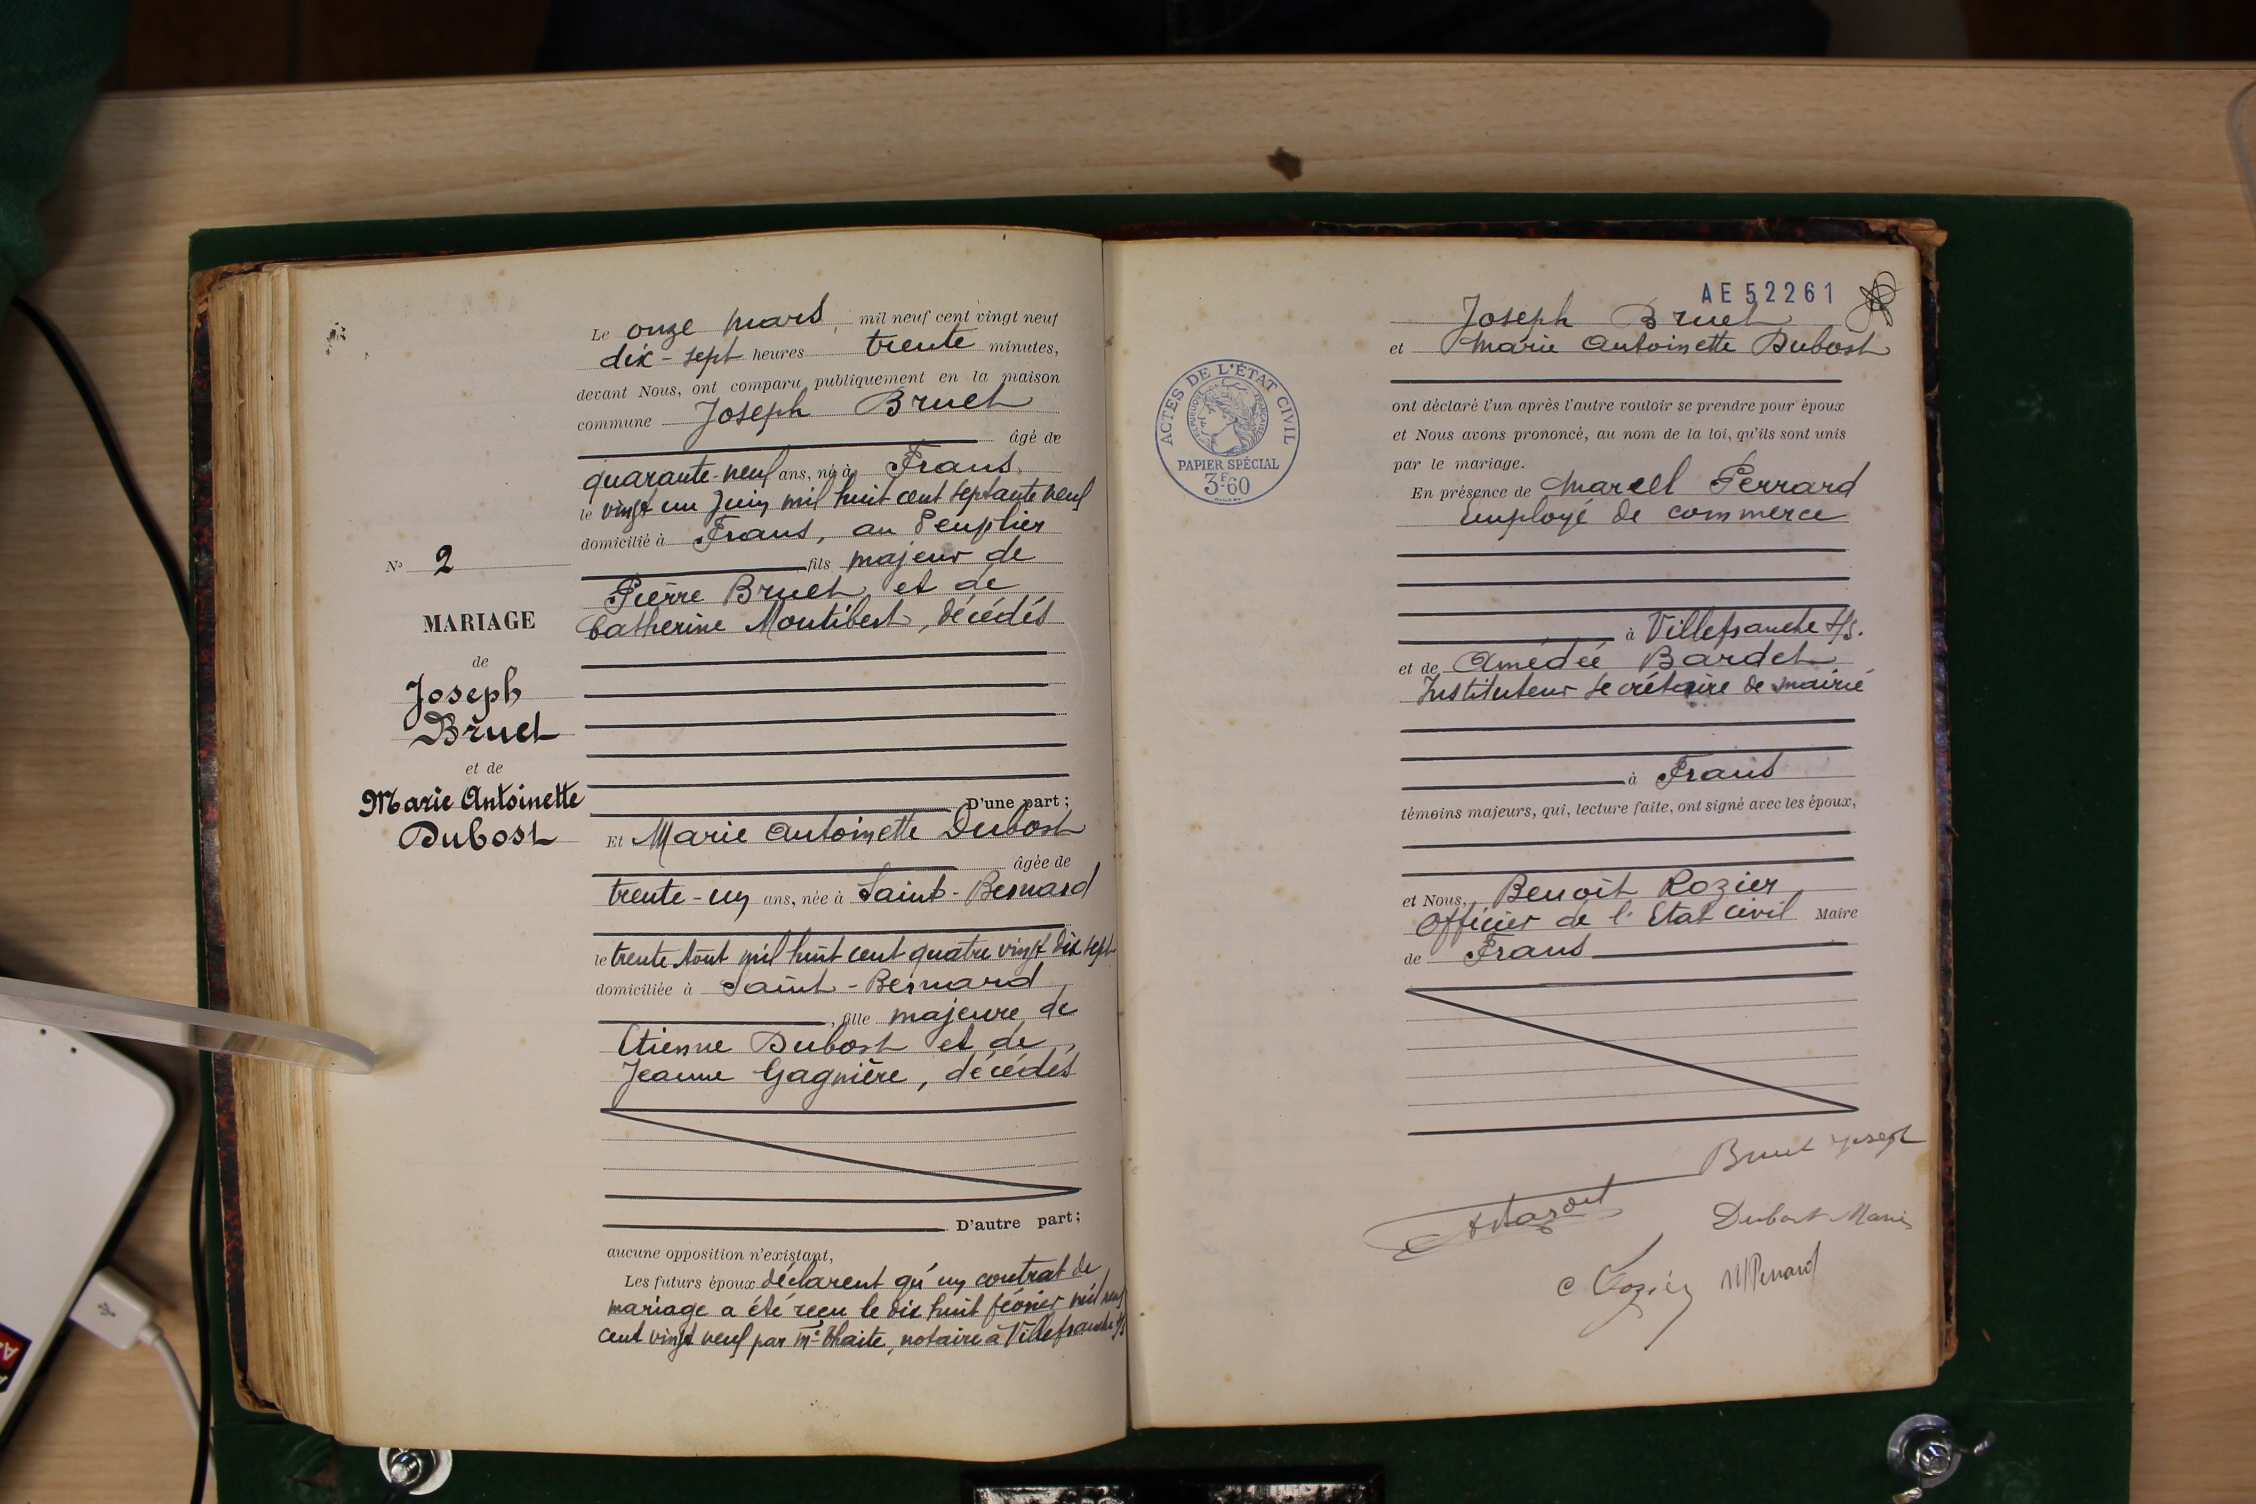 Le onze mars, mil neuf cent vingt neuf
dix-sept heures trente minutes,
devant Nous, ont comparu publiquement en la maison
commune Joseph Bruet
âgé de
quarante-neuf ans, né à Frans
le vingt un Juin mil huit cent septante neuf
domicilié à Frans, au Peuplier
fils majeur de
Pierre Bruet et de
Catherine Montibert, décédés
D'une part;
Et Marie Antoinette Dubost
âgée de
trente-un ans, née à Saint-Bernard
le trente Août mil huit cent quatre vingt dix sept
domiciliée à Saint-Bernard
, fille majeure de
Etienne Dubost et de
Jeanne Gagnière, décédés
D'autre part;
aucune opposition n'existant,
Les futurs époux déclarent qu'un contrat de
mariage a été reçu le dix huit février mil neuf
cent vingt neuf par Me Thaite, notaire à Villefranche s/s
No 2
MARIAGE
de
Joseph
Bruet
et de
Marie Antoinette
Dubost
AE 52261
Joseph Bruet
et Marie Antoinette Dubost
ont déclaré l'un après l'autre vouloir se prendre pour époux
et Nous avons prononcé, au nom de la loi, qu'ils sont unis
par le mariage.
En présence de Marcel Perrard
Employé de commerce
à Villefranche s/s.
et de Amédée Bardet
Instituteur secrétaire de mairie
à Frans
témoins majeurs, qui, lecture faite, ont signé avec les époux,
et Nous, Benoît Rozier
Officier de l'Etat Civil Maire
de Frans
ACTES DE L'ÉTAT CIVIL
RÉPUBLIQUE FRANÇAISE
PAPIER SPÉCIAL
3F.60
Bruet Joseph
ABardet
Dubost Marie
Rozier
MPerrard